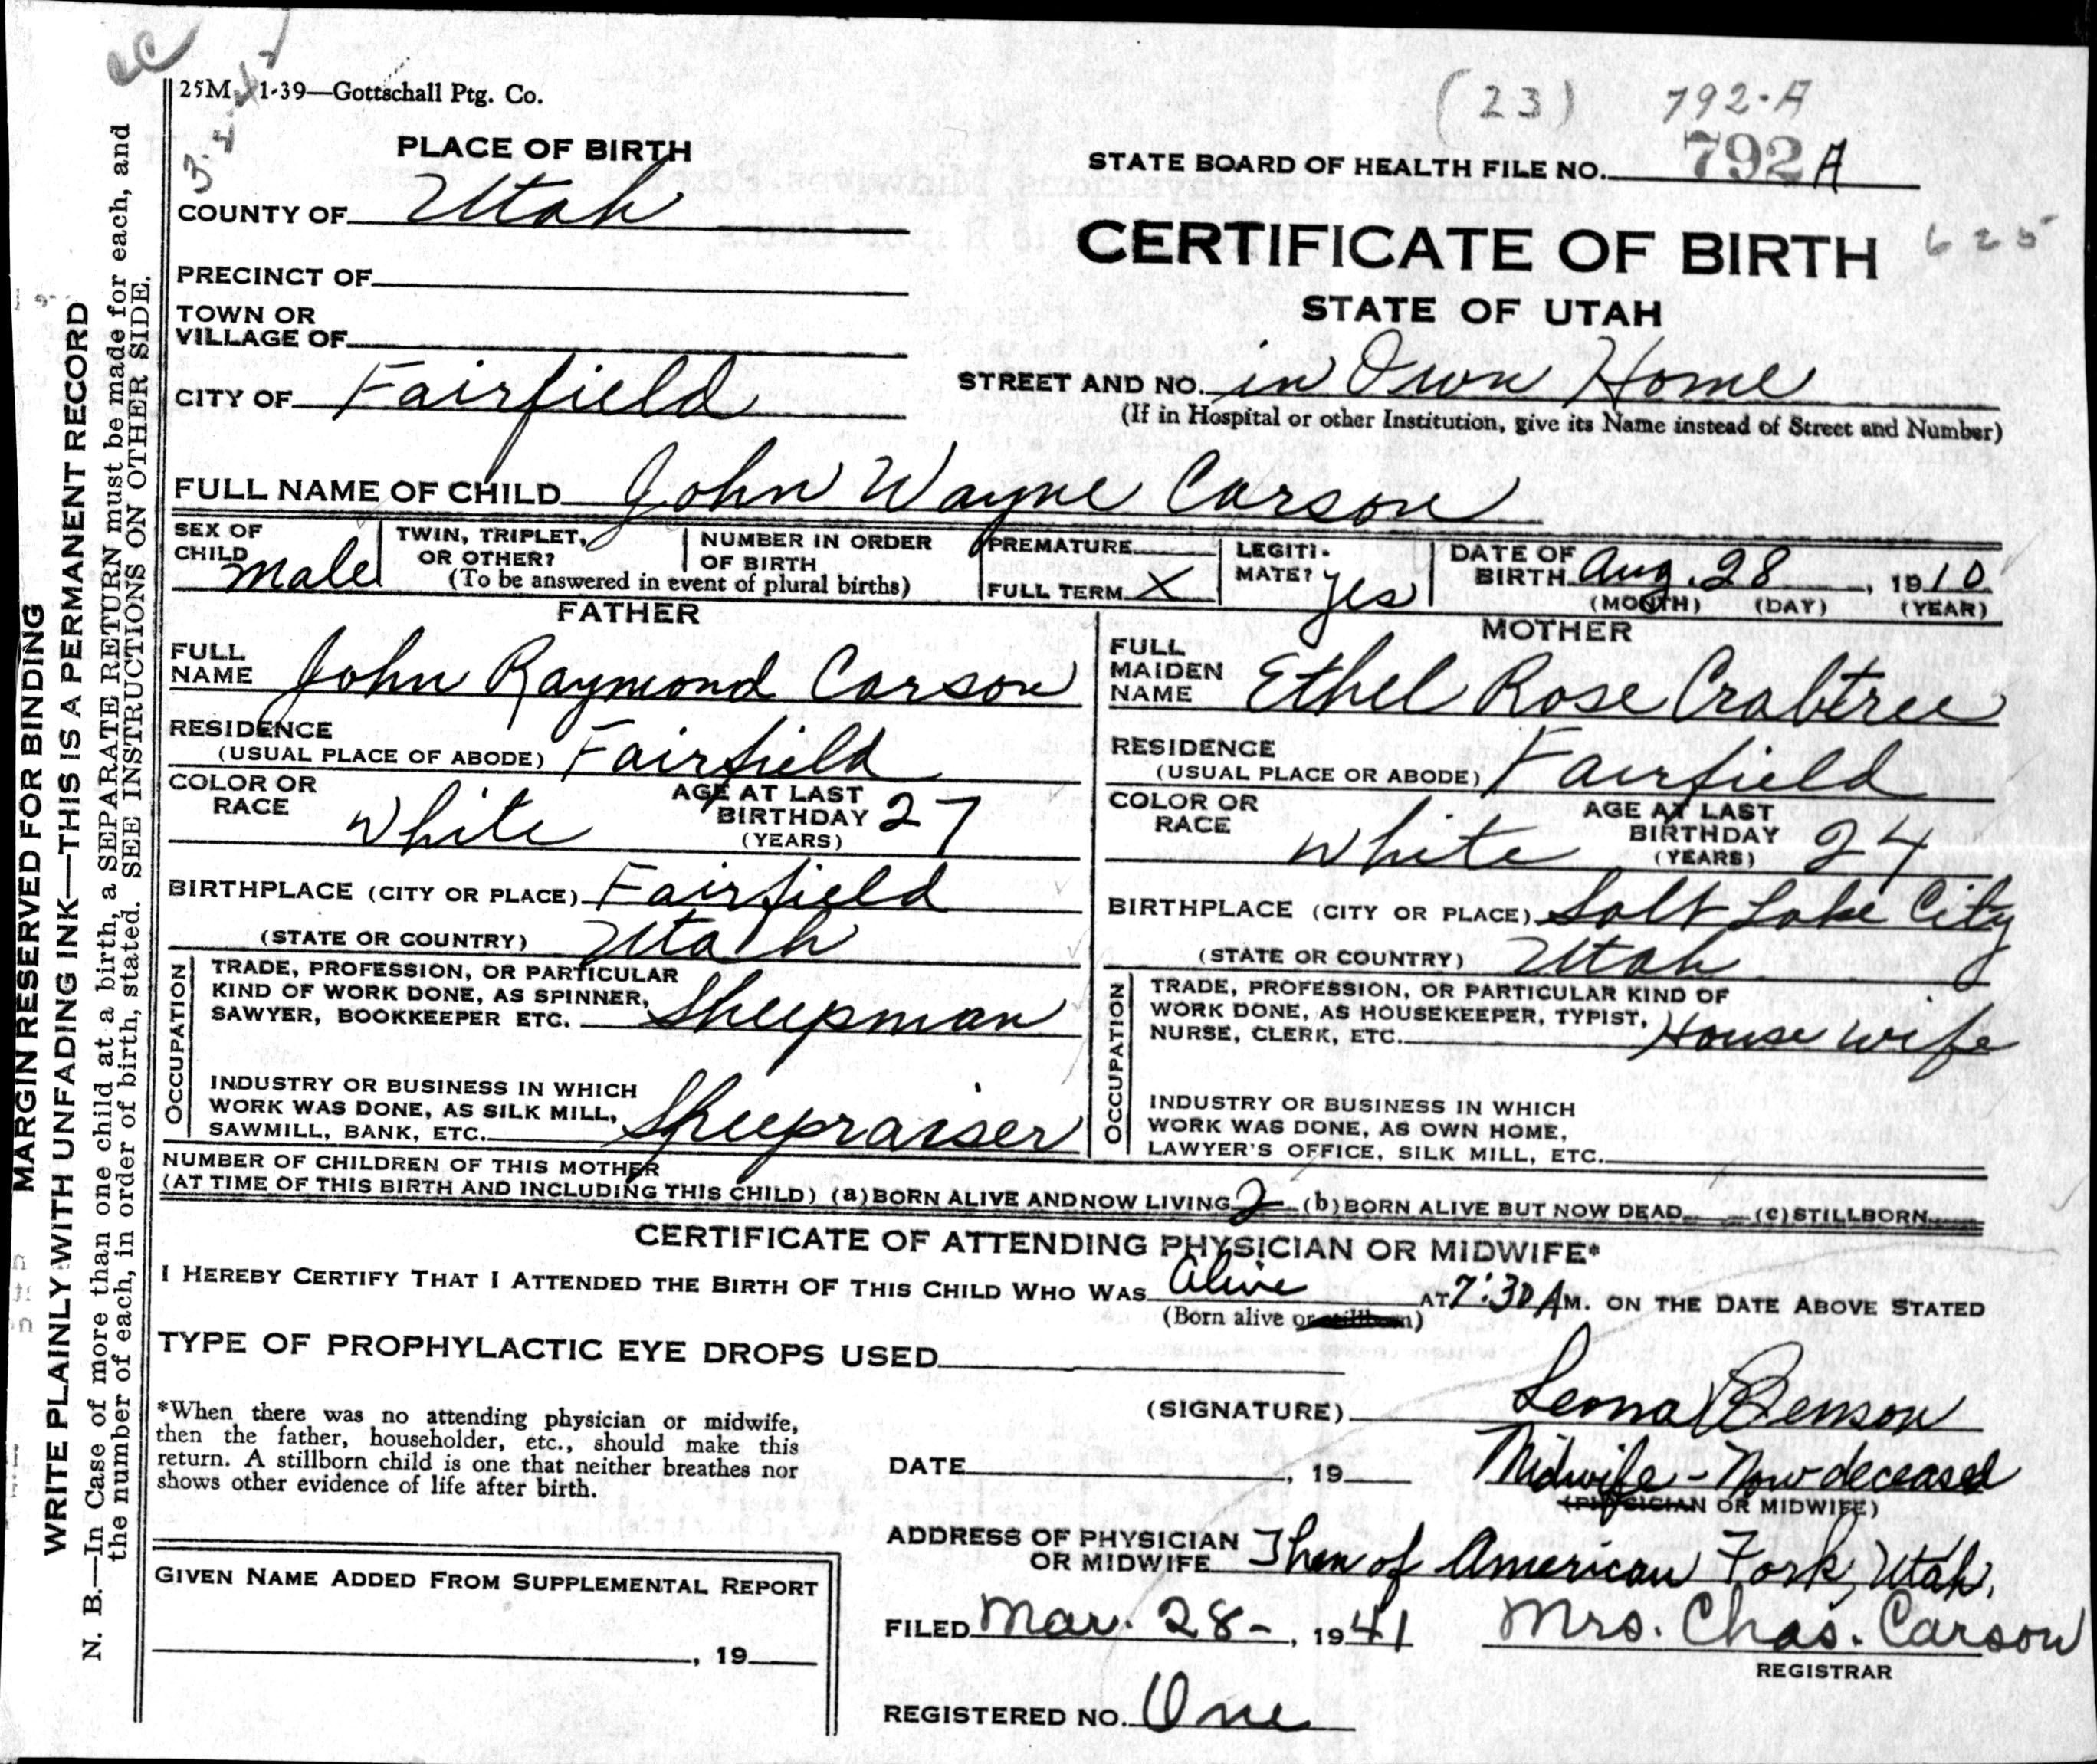 25M 1-39—Gottschall Ptg. Co.
(23) 792-A
PLACE OF BIRTH
STATE BOARD OF HEALTH FILE NO. 792 A
COUNTY OF Utah
CERTIFICATE OF BIRTH 625
PRECINCT OF
STATE OF UTAH
TOWN OR
VILLAGE OF
CITY OF Fairfield
STREET AND NO. in Own Home
(If in Hospital or other Institution, give its Name instead of Street and Number)
FULL NAME OF CHILD John Wayne Carson
SEX OF CHILD male
TWIN, TRIPLET, OR OTHER?
NUMBER IN ORDER OF BIRTH
(To be answered in event of plural births)
PREMATURE
FULL TERM X
LEGITI-
MATE? yes
DATE OF
BIRTH Aug. 28, 1910
(MONTH) (DAY) (YEAR)
FATHER
FULL
NAME John Raymond Carson
RESIDENCE
(USUAL PLACE OF ABODE) Fairfield
COLOR OR
RACE white
AGE AT LAST
BIRTHDAY 27
(YEARS)
BIRTHPLACE (CITY OR PLACE) Fairfield
(STATE OR COUNTRY) Utah
OCCUPATION
TRADE, PROFESSION, OR PARTICULAR
KIND OF WORK DONE, AS SPINNER,
SAWYER, BOOKKEEPER ETC. Sheepman
INDUSTRY OR BUSINESS IN WHICH
WORK WAS DONE, AS SILK MILL,
SAWMILL, BANK, ETC. Sheepraiser
MOTHER
FULL
MAIDEN
NAME Ethel Rose Crabtree
RESIDENCE
(USUAL PLACE OR ABODE) Fairfield
COLOR OR
RACE white
AGE AT LAST
BIRTHDAY 24
(YEARS)
BIRTHPLACE (CITY OR PLACE) Salt Lake City
(STATE OR COUNTRY) Utah
OCCUPATION
TRADE, PROFESSION, OR PARTICULAR KIND OF
WORK DONE, AS HOUSEKEEPER, TYPIST,
NURSE, CLERK, ETC. House wife
INDUSTRY OR BUSINESS IN WHICH
WORK WAS DONE, AS OWN HOME,
LAWYER'S OFFICE, SILK MILL, ETC.
NUMBER OF CHILDREN OF THIS MOTHER
(AT TIME OF THIS BIRTH AND INCLUDING THIS CHILD) (a) BORN ALIVE AND NOW LIVING 2 (b) BORN ALIVE BUT NOW DEAD (c) STILLBORN
CERTIFICATE OF ATTENDING PHYSICIAN OR MIDWIFE*
I HEREBY CERTIFY THAT I ATTENDED THE BIRTH OF THIS CHILD WHO WAS Alive AT 7:30 A M. ON THE DATE ABOVE STATED
(Born alive or stillborn)
TYPE OF PROPHYLACTIC EYE DROPS USED
*When there was no attending physician or midwife,
then the father, householder, etc., should make this
return. A stillborn child is one that neither breathes nor
shows other evidence of life after birth.
(SIGNATURE) Leona Benson
DATE , 19 Midwife - Now deceased
(PHYSICIAN OR MIDWIFE)
ADDRESS OF PHYSICIAN
OR MIDWIFE Then of American Fork, Utah.
GIVEN NAME ADDED FROM SUPPLEMENTAL REPORT
, 19
FILED Mar. 28-, 1941 Mrs. Chas. Carson
REGISTRAR
REGISTERED NO. One
MARGIN RESERVED FOR BINDING
WRITE PLAINLY WITH UNFADING INK—THIS IS A PERMANENT RECORD
N. B.—In Case of more than one child at a birth, a SEPARATE RETURN must be made for each, and
the number of each, in order of birth, stated. SEE INSTRUCTIONS ON OTHER SIDE.